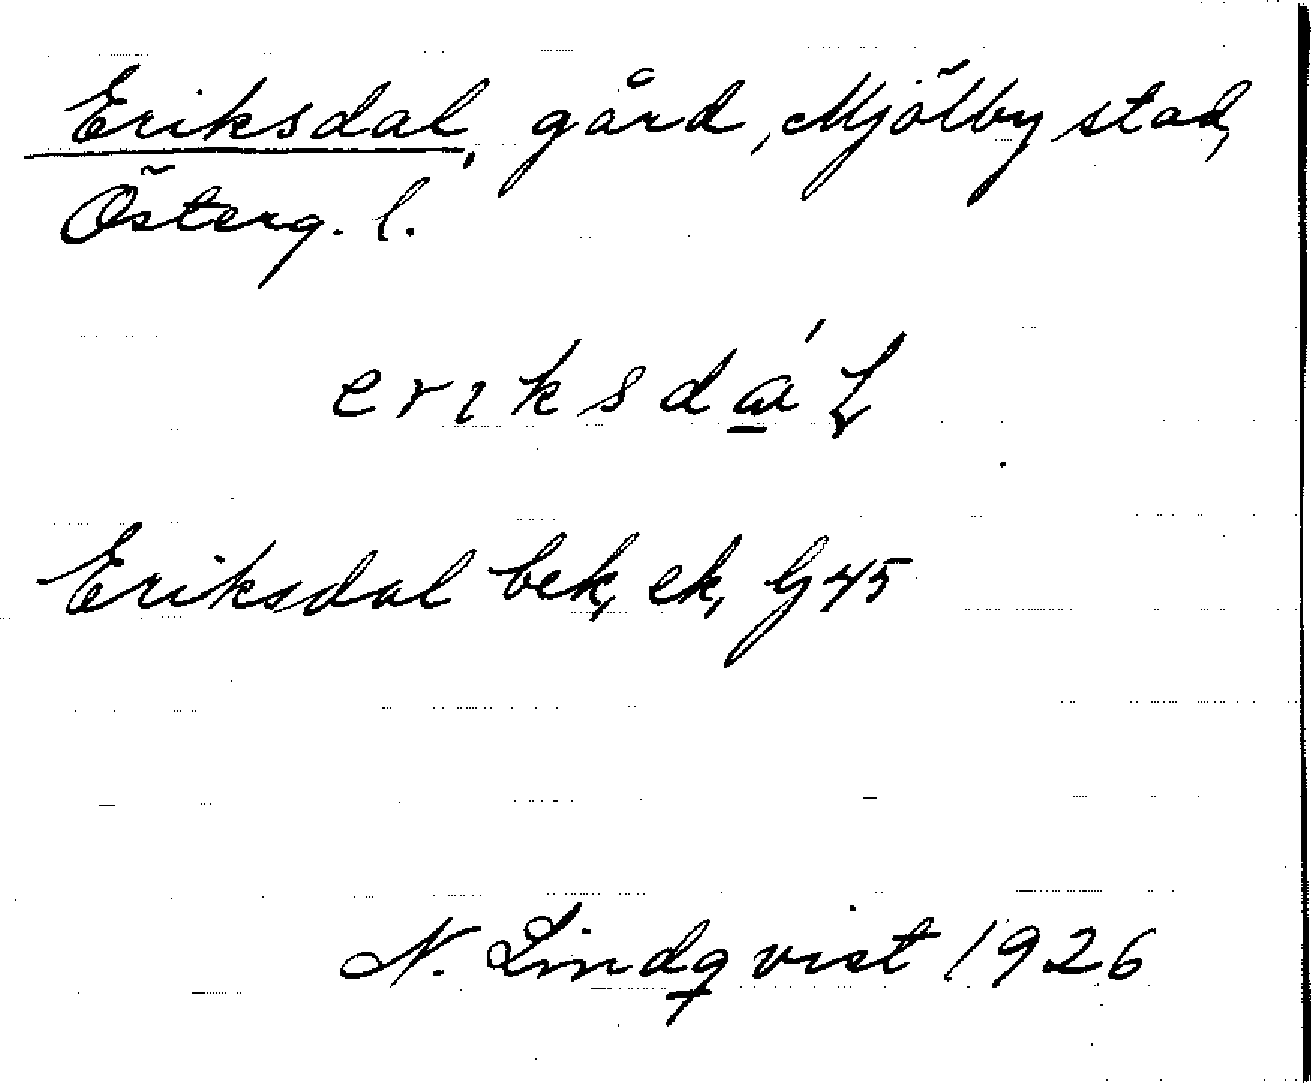 Eriksdal, gård, Mjölby stad,
Österg. l.
eriksdɑ́L
Eriksdal bek, ek, G 45
N. Lindqvist 1926